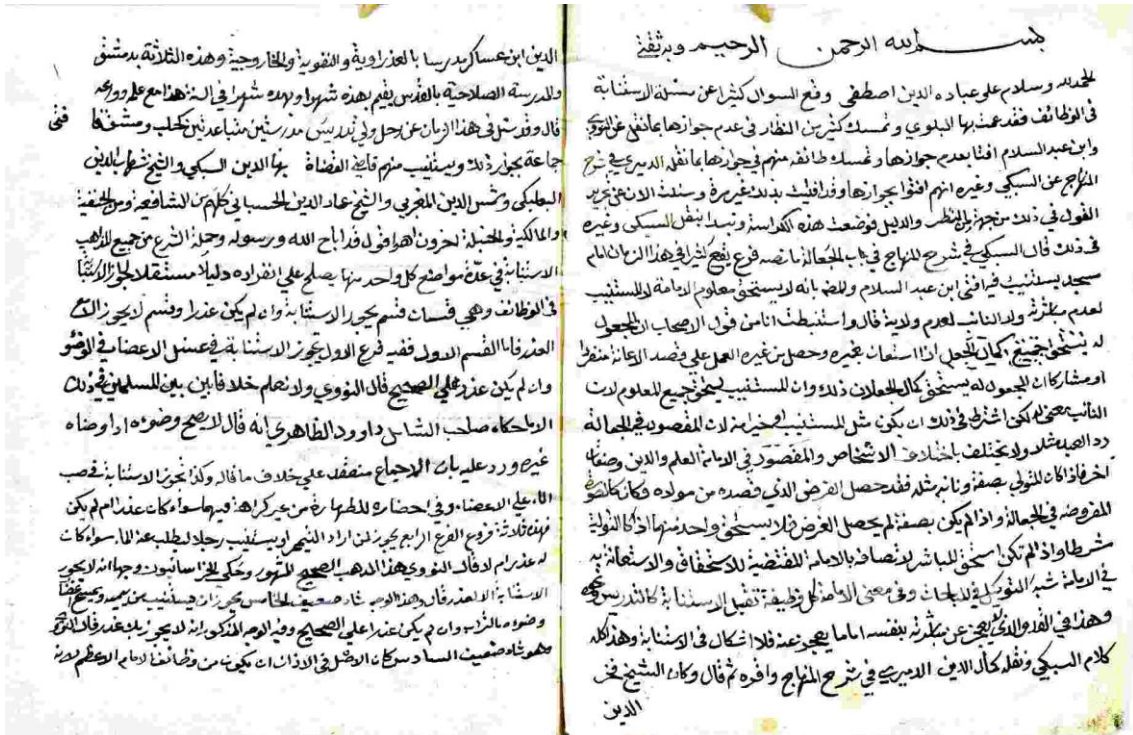 بسم الله الرحمن الرحيم وبه ثقتي
الحمد لله وسلام على عباده الذين اصطفى وقع السوال كثيرا عن مسئلة الاستنابة
في الوظائف فقد عمت بها البلوى وتمسك كثير من النظار في عدم جوازها بما نقل عن النووي
وابن عبد السلام افتيا بعدم جوازها وتمسك طائفة منهم في جوازها بما نقله الدميري في شرح
المنهاج عن السبكي وغيره انهم افتوا بجوازها وقد افتيت بذلك غير مرة وسئلت الان عن تحرير
القول في ذلك من جهتي النظر والدليل فوضعت هذه الكراسة ونبدا بنقل السبكي وغيره
في ذلك قال السبكي في شرح المنهاج في باب الجعالة ما نصه فرع يقع كثيرا في هذا الزمان امام
مسجد يستنيب فيه افتى ابن عبد السلام والمصنف بانه لا يستحق معلوم الامامة لا المستنيب
لعدم مباشرته ولا النائب لعدم ولايته قال واستنبطت انا من قول الاصحاب ان المجعول
له يستحق جميع اكمال الجعل اذا استعان بغيره وحصل من غيره العمل على قصد الاعانة منفردا
او مشاركا ان المجعول له يستحق كمال الجعل ان ذلك وان المستنيب يستحق جميع المعلوم لان
النائب معين له لكن اشترط في ذلك ان يكون مثل المستنيب او خيرا منه لان المقصود في الجعالة
رد العبد مثلا ولا يختلف باختلاف الاشخاص والمقصود في الامامة العلم والدين وصفات
اخر فاذا كان المتولي بصفة ونائبه مثله فقد حصل الغرض الذي قصده من مولاه فكانه كالصورة
المفروضة في الجعالة واذا لم يكن بصفة لم يحصل الغرض فلا يستحق واحد منهما اذ كا التولية
شرطا واذا لم تكن استحق المباشر لاتصافه بالامامة المقتضية للاستحقاق والاستعانة به
في الامامة شبه التوكيل في المباحات وفي معنى الامامة كل وظيفة تقبل الاستنابة كالتدريس ونحوه
وهذا في القدر الذي لا يعجز عن مباشرته بنفسه اما ما يعجز عنه فلا اشكال في الاستنابة وهذا كله
كلام السبكي ونقله كمال الدين الدميري في شرح المنهاج واقره ثم قال وكان الشيخ فخر
الدين
الدين ابن عساكر مدرسا بالعذراوية والتقوية والجاروجية وهذه الثلاثة بدمشق
والمدرسة الصلاحية بالقدس يقيم بهذه شهرا وبهذه شهرا في السنة هذا مع علمه وورعه
قال وقد سئل في هذا الزمان عن رجل ولي تدريس مدرستين متباعدتين كحلب ودمشق فا
فتى
جماعة بجواز ذلك ويستنيب منهم قاضي القضاة بها الدين السبكي والشيخ شهاب الدين
البعلبكي وشمس الدين المغربي والشيخ عماد الدين الحسباني كلهم من الشافعية ومن الحنفية
والمالكية والحنبلة اخرون اه اقول قد اباح الله ورسوله وحملة الشرع من جميع المذاهب
الاستنابة في عدة مواضع كل واحد منها يصلح على انفراده دليلا مستقلا لجواز الاستنابة
في الوظائف وهي قسمان قسم يجوز الاستنابة وان لم يكن عذر وقسم لا يجوز الا مع
العذر فاما القسم الاول ففيه فرع الاول تجوز الاستنابة في غسل الاعضاء في الوضو
وان لم يكن عذر على الصحيح قال النووي ولا نعلم خلافا بين المسلمين في ذلك
الا ما حكاه صاحب الشامل داوود الظاهري انه قال لا يصح وضوه اذا وضاه
غيره ورد عليه بان الاجماع منعقد على خلاف ما قاله وكذا تجوز الاستنابة في صب
الماء على الاعضاء وفي احضاره للطهارة من غير كراهة فيهما سواء كان عذر ام لم يكن
فهذه ثلاثة فروع الفرع الرابع يجوز لمن اراد التيمم ان يستنيب رجلا ليطلب عنه الماء سواء كان
له عذر ام لا قال النووي هذا المذهب الصحيح المشهور وحكى الخراسانيون وجها انه لا يجوز
الاستنابة الا لعذر قال وهذا الوجه شاذ ضعيف الخامس يجوز ان يستنيب من ييممه ويمسح اعضا
وضوه بالتراب وان لم يكن عذر على الصحيح وفيه الوجه المذكور انه لا يجوز بلا عذر قال النووي
وهو شاذ ضعيف السادس كان الاصل في الاذان ان يكون من وظائف الامام الاعظم لانه